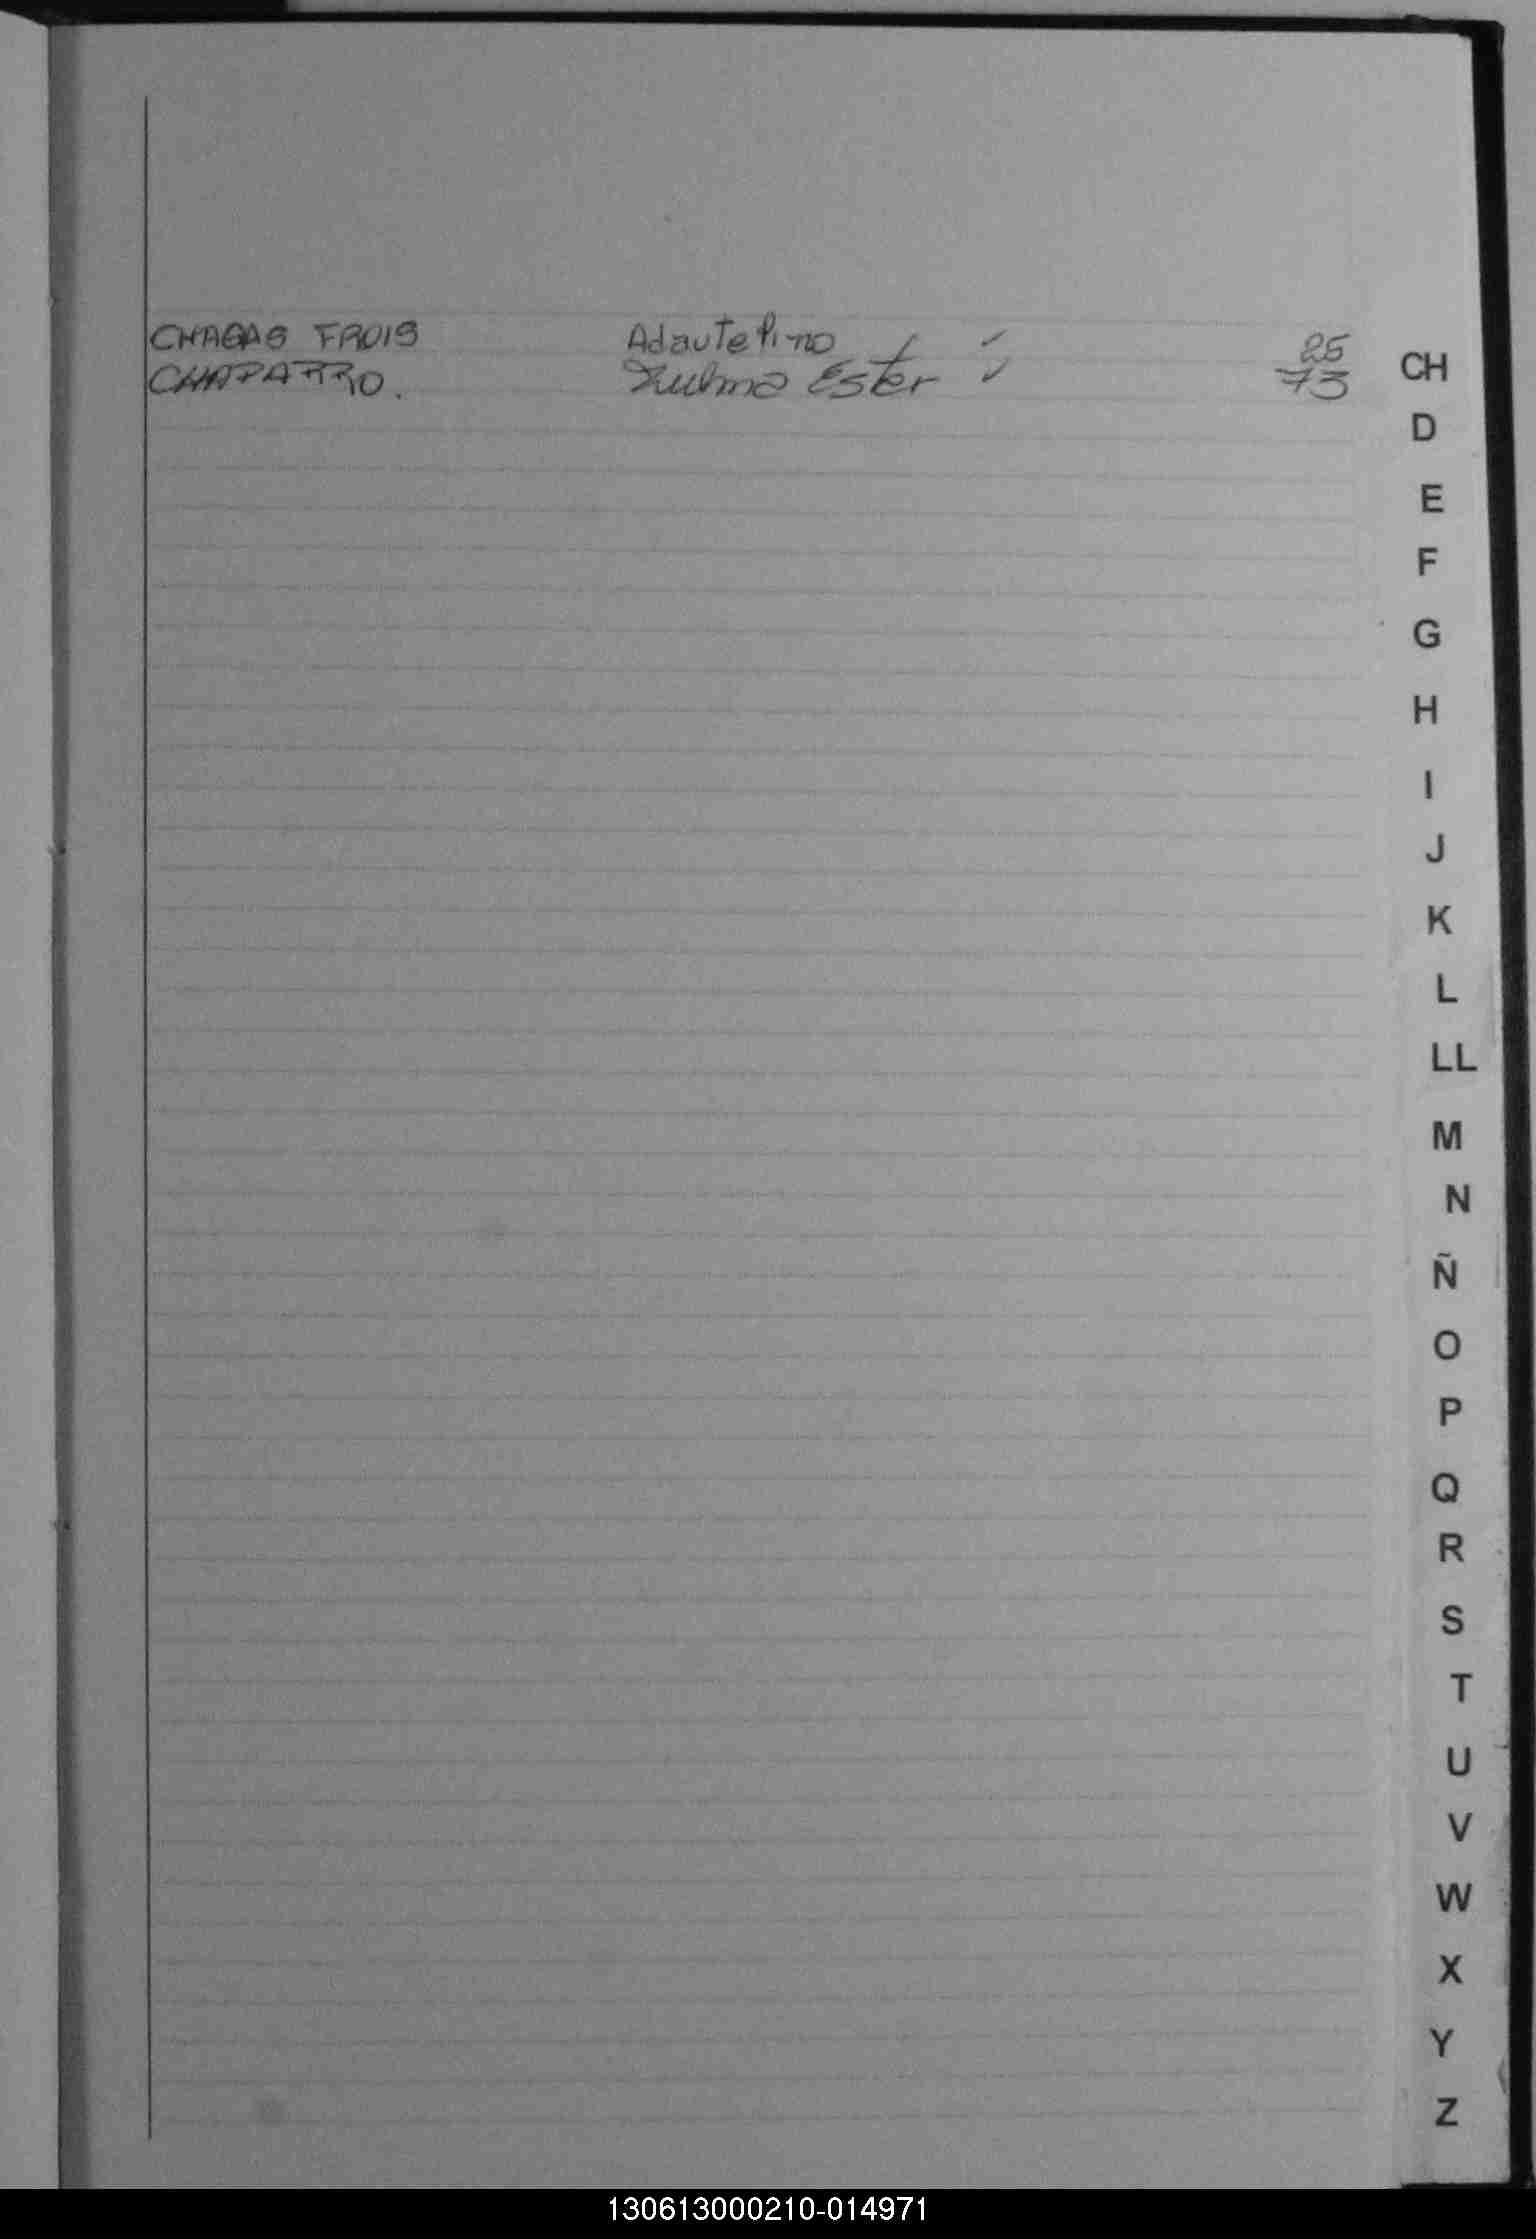 CHAGAS FROIS Adautelino 25
CHAPARRO. Zulma Ester 73
CH
D
E
F
G
H
I
J
K
L
LL
M
N
Ñ
O
P
Q
R
S
T
U
V
W
X
Y
Z
130613000210-014971